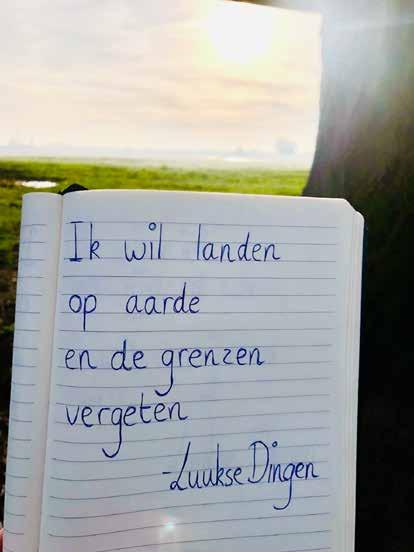 Ik wil landen
op aarde
en de grenzen
vergeten
-Luukse Dingen